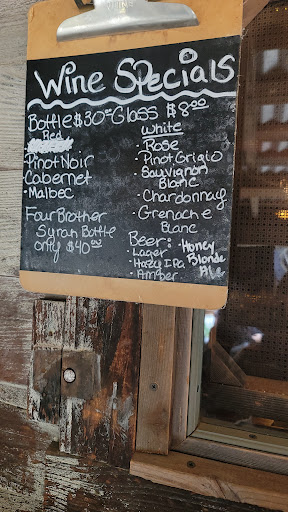 Wine Specials
Bottle $30⁰⁰ Glass $8⁰⁰
Red
Pinot Noir
Cabernet
- Malbec
Four Brother
Syrah Bottle
only $40⁰⁰
White
- Rose
- Pinot Grigio
- Sauvignon
Blanc
- Chardonnay
- Grenache
Blanc
Beer:
- Lager
- Hazy IPA
- Amber
- Honey
Blonde
Ale